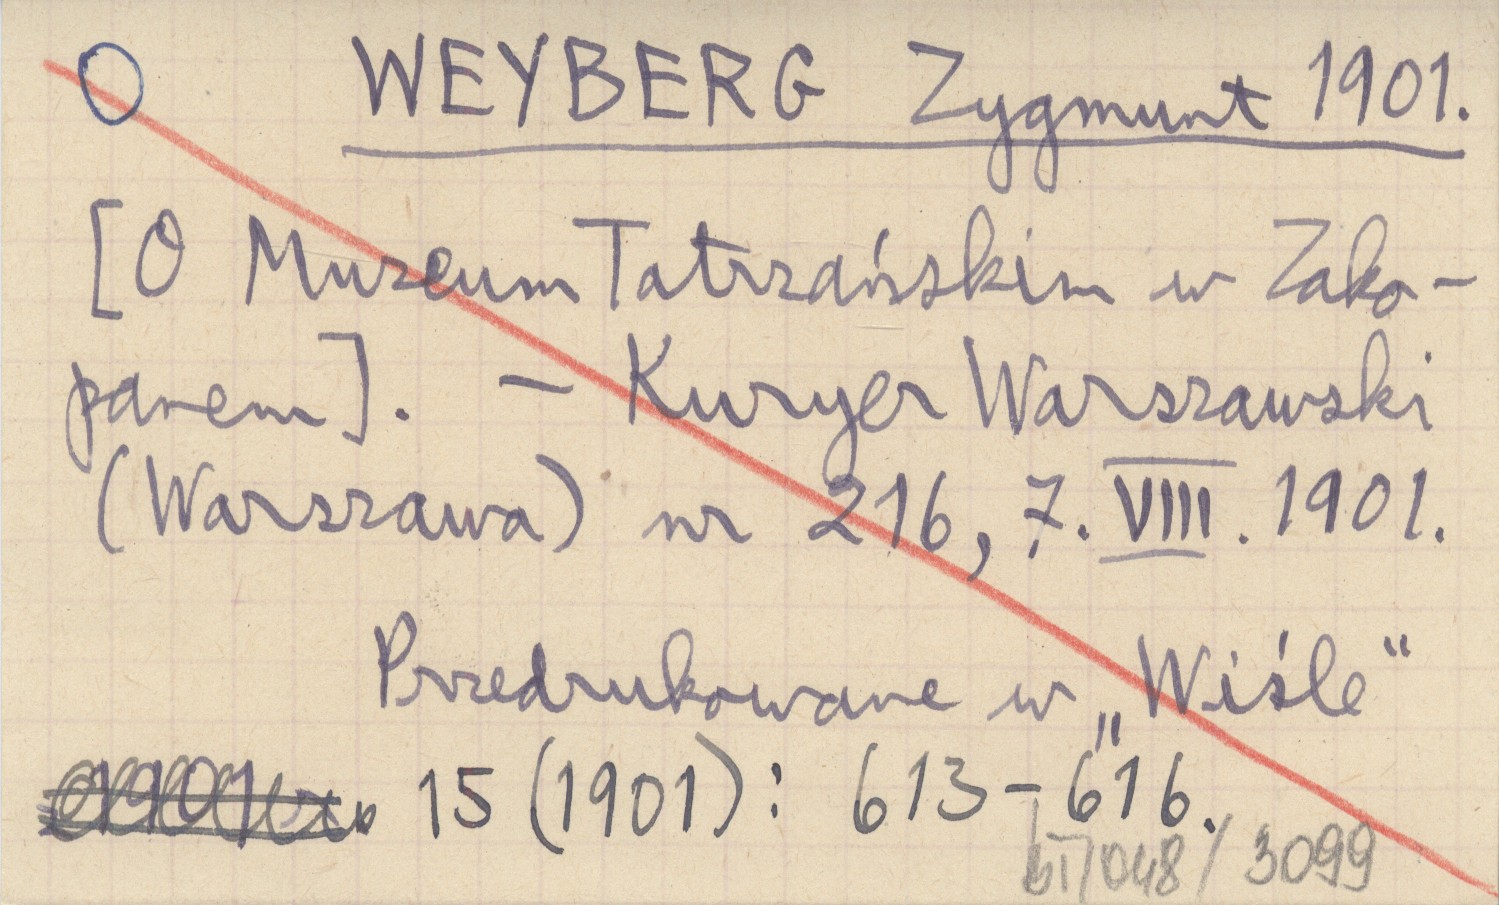 WEYBERG Zygmunt 1901.
[O Muzeum Tatrzańskim w Zako-
panem]. — Kuryer Warszawski
(Warszawa) nr 216, 7. VIII. 1901.
Przedrukowane w „Wiśle"
15 (1901): 613-616.
/048/3099